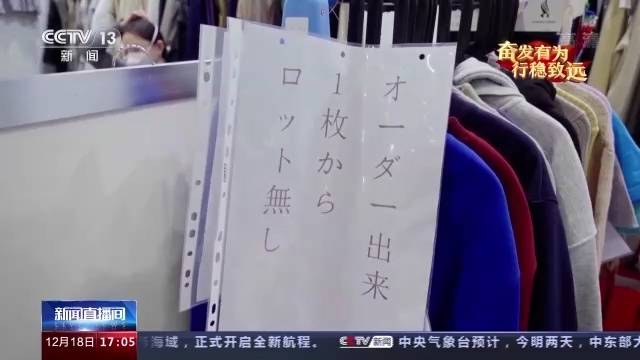 CCTV 13
新闻
奋发有为
行稳致远
オーダー出来
1枚から
ロット無し
新闻直播间
12月18日 17:05
海域，正式开启全新航程。 CCTV新闻 中央气象台预计，今明两天，中东部